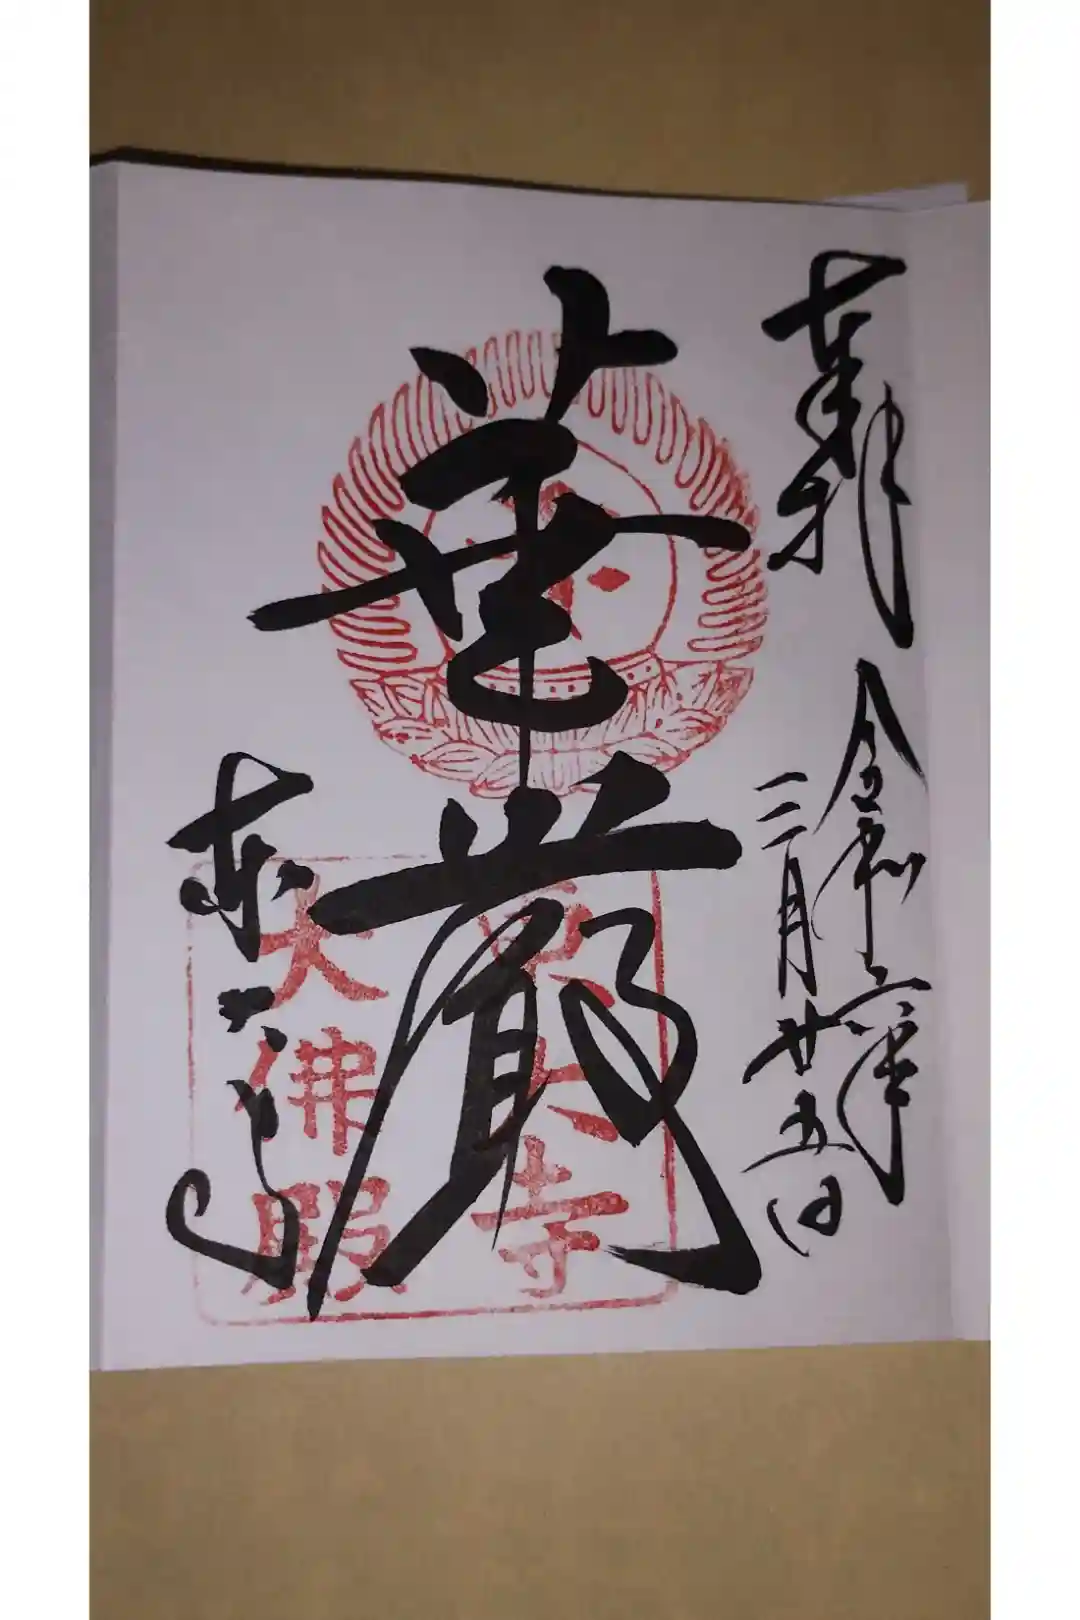 奉拝
令和六年
三月廿五日
華厳
東大寺
東大寺
大佛殿